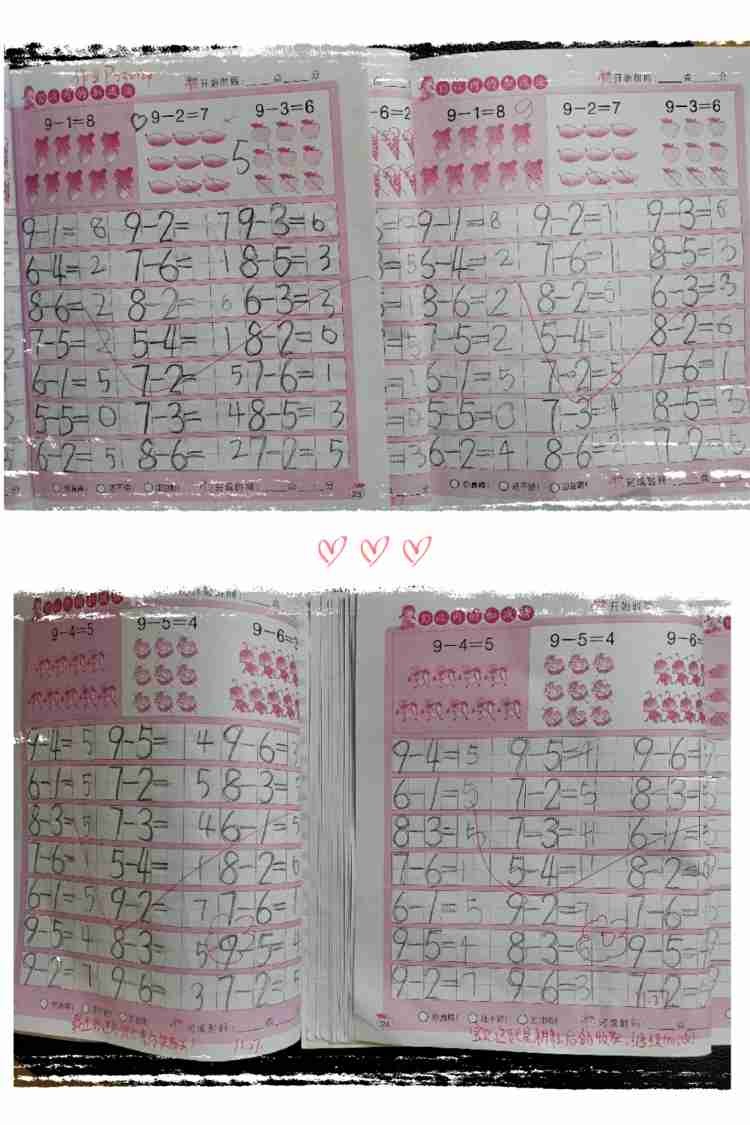 开始时间: 点 分
9-1=8 9-2=7 9-3=6
5
9-1= 8 9-2= 7 9-3= 6
6-4= 2 7-6= 1 8-5= 3
8-6= 2 8-2= 6 6-3= 3
7-5= 2 5-4= 1 8-2= 6
6-1= 5 7-2= 5 7-6= 1
5-5= 0 7-3= 4 8-5= 3
6-2= 5 8-6= 2 7-2= 5
开始时间: 点 分
-6=2
9-1=8 9 9-2=7 9-3=6
9-1=8 9-2=7 9-3=6
6-4=2 7-6=1 8-5=3
8-6=2 8-2=6 6-3=3
7-5=2 5-4=1 8-2=6
6-1=5 7-2=5 7-6=1
5-5=0 7-3=4 8-5=3
6-2=4 8-6=2 7-2=5
完成时间: 点 分
9-4=5 9-5=4 9-6=
9-4= 5 9-5= 4 9-6=
6-1= 5 7-2= 5 8-3=
8-3= 5 7-3= 4 6-1= 5
7-6= 5-4= 1 8-2= 6
6-1= 5 9-2= 7 7-6=
9-5= 4 8-3= 5 9-5= 4
9-2= 7 9-6= 3 7-2= 5
完成时间: 点
11.27
开始时
9-4=5 9-5=4 9-6=
9-4=5 9-5=4 9-6=
6-1=5 7-2=5 8-3=5
8-3=5 7-3=4 6-1=5
7-6=1 5-4=1 8-2=
6-1=5 9-2=7 7-6=
9-5=4 8-3= 9-5=
9-2=7 9-6=3 7-2=
24 完成时间: 点
11.27